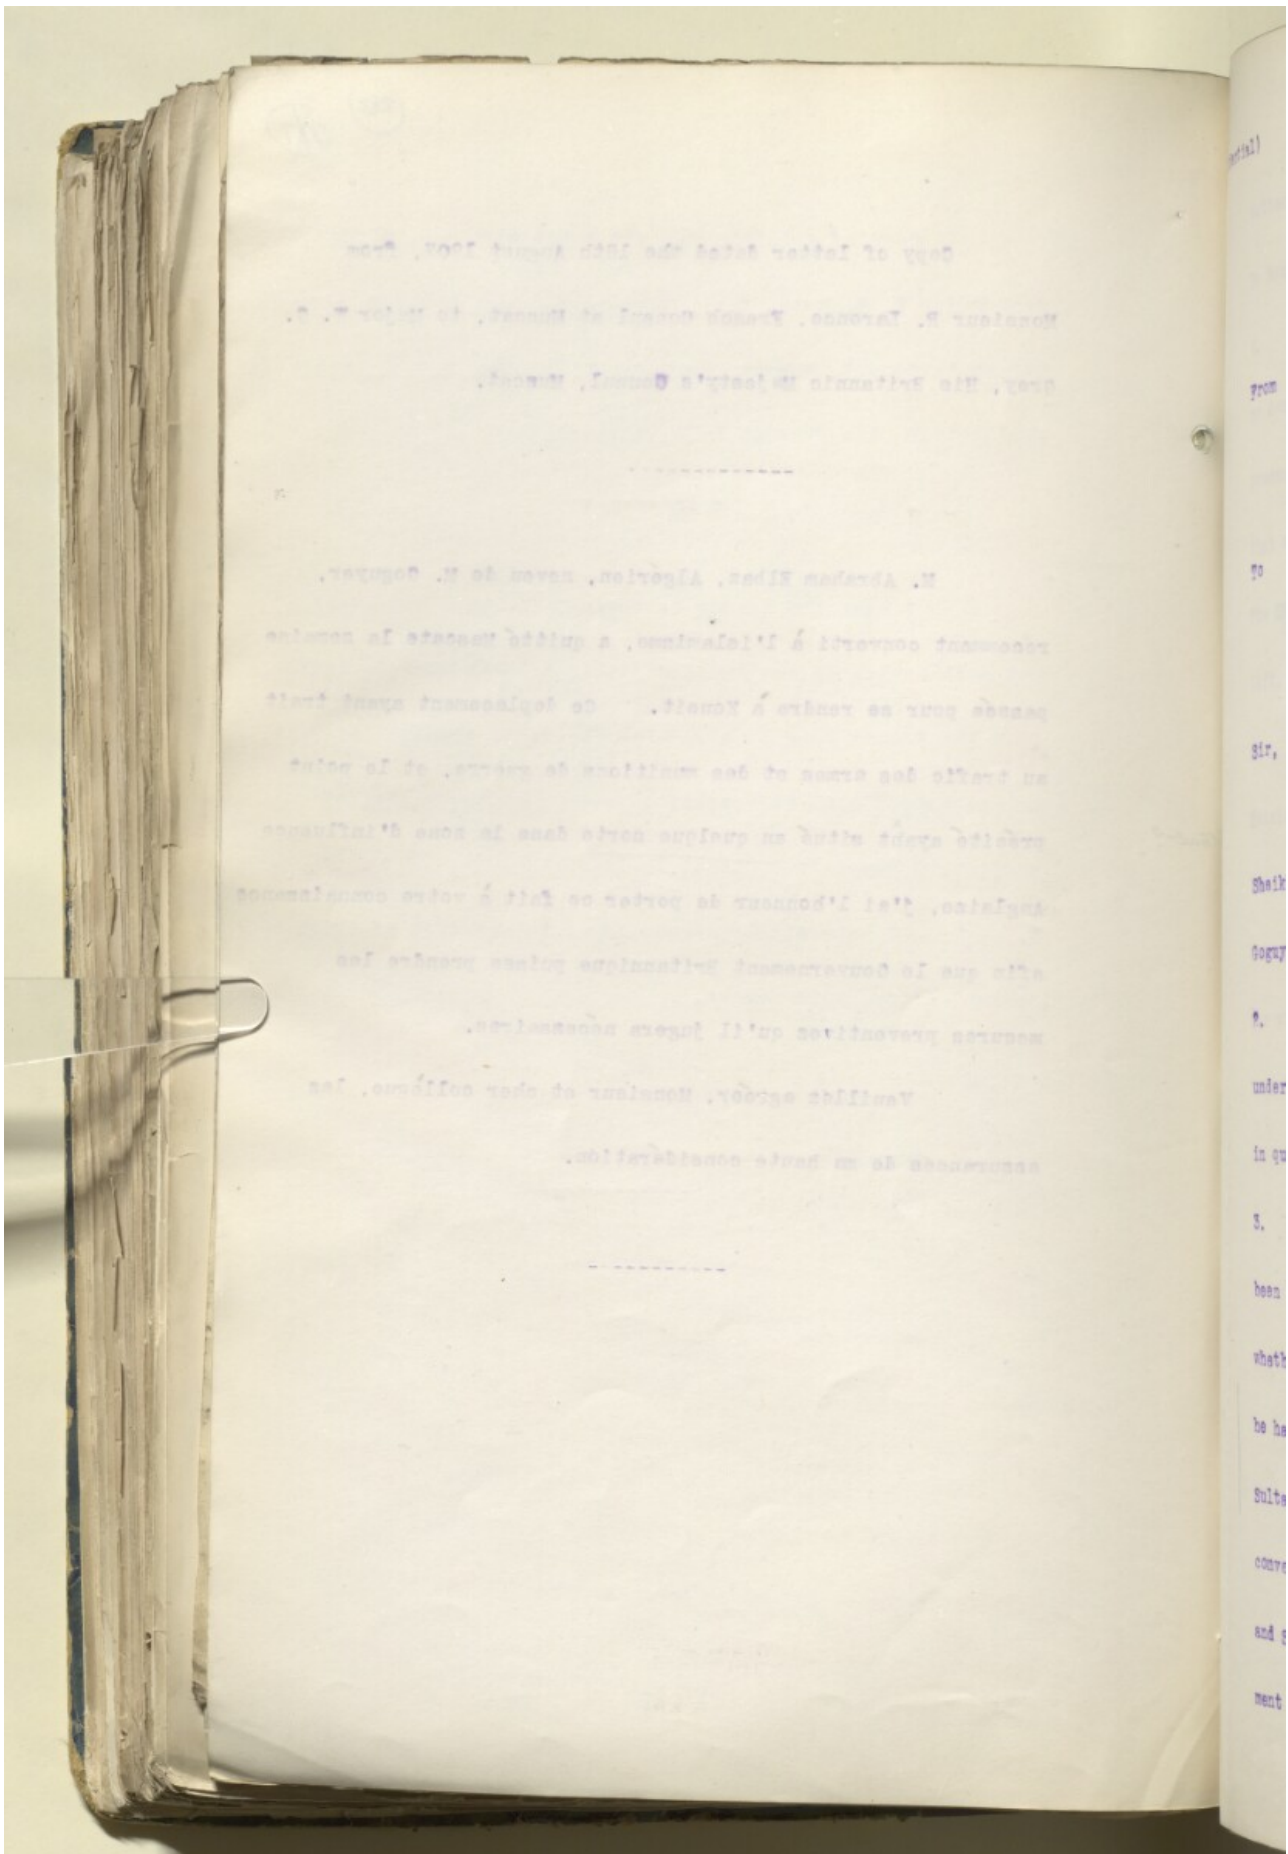 Copy of letter dated the 15th August 1907, from
Monsieur R. Laronce, French Consul at Muscat, to Major W. G.
Grey, His Britannic Majesty's Consul, Muscat.
M. Abraham Elbas, Algérien, neveu de M. Goguyer,
récemment converti à l'islamisme, a quitté Mascate la semaine
passée pour se rendre à Koueit. Ce deplacement ayant trait
au trafic des armes et des munitions de guerre, et le point
précité ayant situé en quelque sorte dans la zone d'influence
Anglaise, j'ai l'honneur de porter ce fait à votre connaissance
afin que le Gouvernement Britannique puisse prendre les
mesures preventives qu'il jugera nécessaires.
Veuilléz agréer, Monsieur et cher collègue, les
assurances de ma haute considération.
From
To
Sir,
Sheik
Goguy
2.
under
in qu
3.
been
wheth
be ha
Sulta
conve
and S
ment